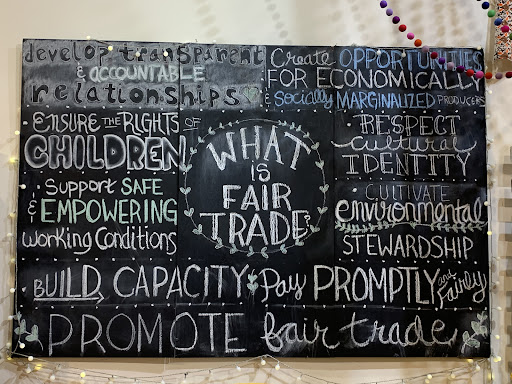 develop transparent
& ACCOUNTABLE
relationships
Create OPPORTUNITIES
FOR ECONOMICALLY
& Socially MARGINALIZED PRODUCERS
ENSURE THE RIGHTS OF
CHILDREN
Support SAFE
& EMPOWERING
Working Conditions
WHAT
IS
FAIR
TRADE?
RESPECT
cultural
IDENTITY
CULTIVATE
environmental
STEWARDSHIP
BUILD CAPACITY
Pay PROMPTLY and Fairly
PROMOTE fair trade